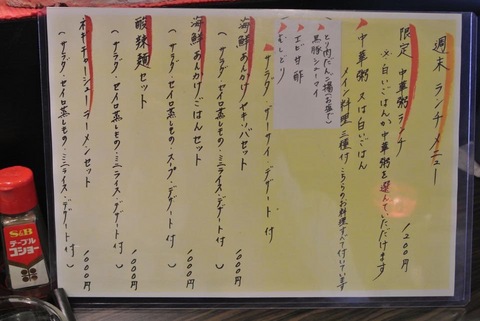 週末ランチメニュー
限定 中華粥ランチ 1200円
※白いごはんか中華粥を選んでいただけます
中華粥 又は白いごはん
メイン料理 三種付 こちらのお料理すべて付いています
とり肉だんご揚(お客下)
黒豚シューマイ
エビ甘酢
むしどり
サラダ・ザーサイ・デザート付
海鮮あんかけヤキソバセット 1000円
(サラダ・セイロ蒸しもの・ミニライス・デザート付)
海鮮あんかけごはんセット 1000円
(サラダ・セイロ蒸しもの・スープ・デザート付)
酸辣麺セット 1000円
(サラダ・セイロ蒸しもの・ミニライス・デザート付)
ネギチャーシューラーメンセット 1000円
(サラダ・セイロ蒸しもの・ミニライス・デザート付)
S&B
テーブル
コショー